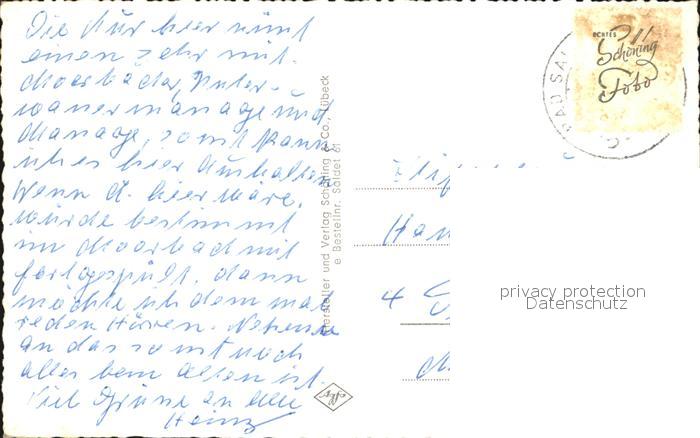 Die Kur hier nimt
einen sehr mit.
Moorbäder, Unter-
wassermassage und
Massage, sonst kann
ich es hier aushalten
Wenn d. hier wäre,
würde bestimmt
im Moorbad mit
fortgespült, dann
möchte ich dem mal
reden hören. Nehme
an das sonst noch
alles beim Alten ist.
Viel Grüsse an alle
Heinz
Hersteller und Verlag Schöning & Co., Lübeck
e Bestellnr. Saldet 61
ECHTES
Schöning
Foto
BAD SAL
Han
4
privacy protection
Datenschutz
Agfa